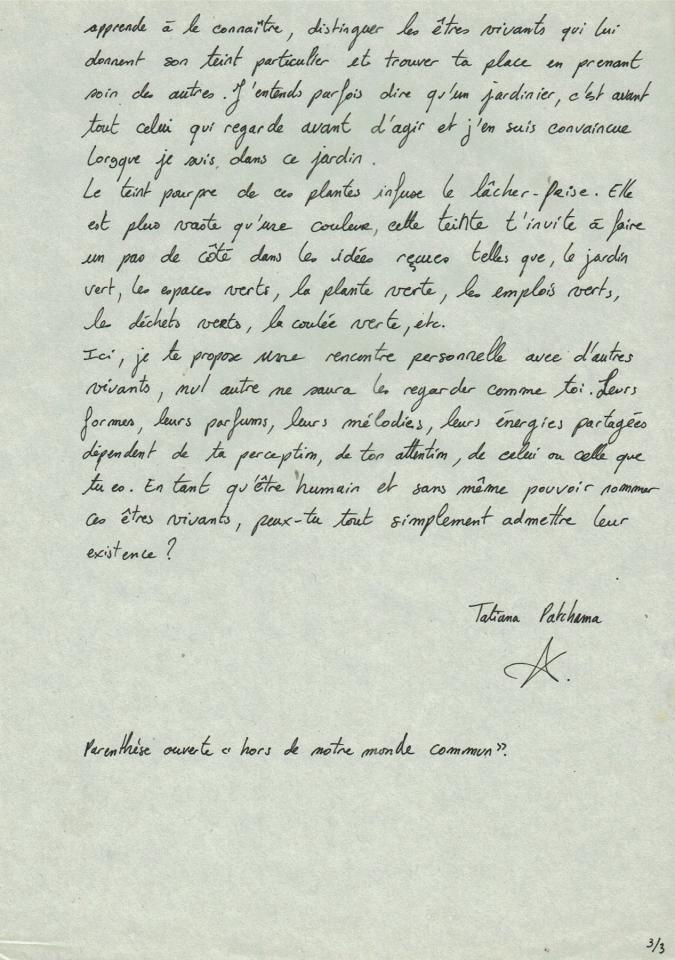 apprende à le connaître, distinguer les êtres vivants qui lui
donnent son teint particulier et trouver ta place en prenant
soin des autres. J'entends parfois dire qu'un jardinier, c'est avant
tout celui qui regarde avant d'agir et j'en suis convaincue
lorsque je suis dans ce jardin.
Le teint pourpre de ces plantes infuse le lâcher-prise. Elle
est plus vaste qu'une couleur, cette teinte t'invite à faire
un pas de côté dans les idées reçues telles que, le jardin
vert, les espaces verts, la plante verte, les emplois verts,
les déchets verts, la coulée verte, etc.
Ici, je te propose une rencontre personnelle avec d'autres
vivants, nul autre ne saura les regarder comme toi. Leurs
formes, leurs parfums, leurs mélodies, leurs énergies partagées
dépendent de ta perception, de ton attention, de celui ou celle que
tu es. En tant qu'être humain et sans même pouvoir nommer
ces êtres vivants, peux-tu tout simplement admettre leur
existence ?
Tatiana Patchama
A.
Parenthèse ouverte « hors de notre monde commun ».
3/3